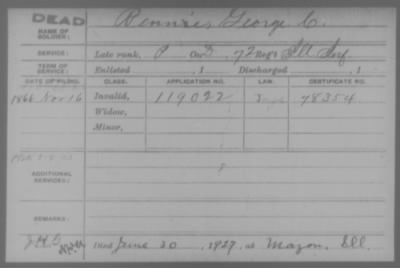 DEAD
NAME OF SOLDIER: George C.
SERVICE: Late rank, P Co. D, 72 Reg't Ill Inf
TERM OF SERVICE: Enlisted , 1 Discharged , 1
DATE OF FILING. CLASS. APPLICATION NO. LAW. CERTIFICATE NO.
1866 Nov 16 Invalid, 119022 78354
Widow,
Minor,
ADDITIONAL SERVICES:
REMARKS:
Died June 30, 1927, at Mazon, Ill.